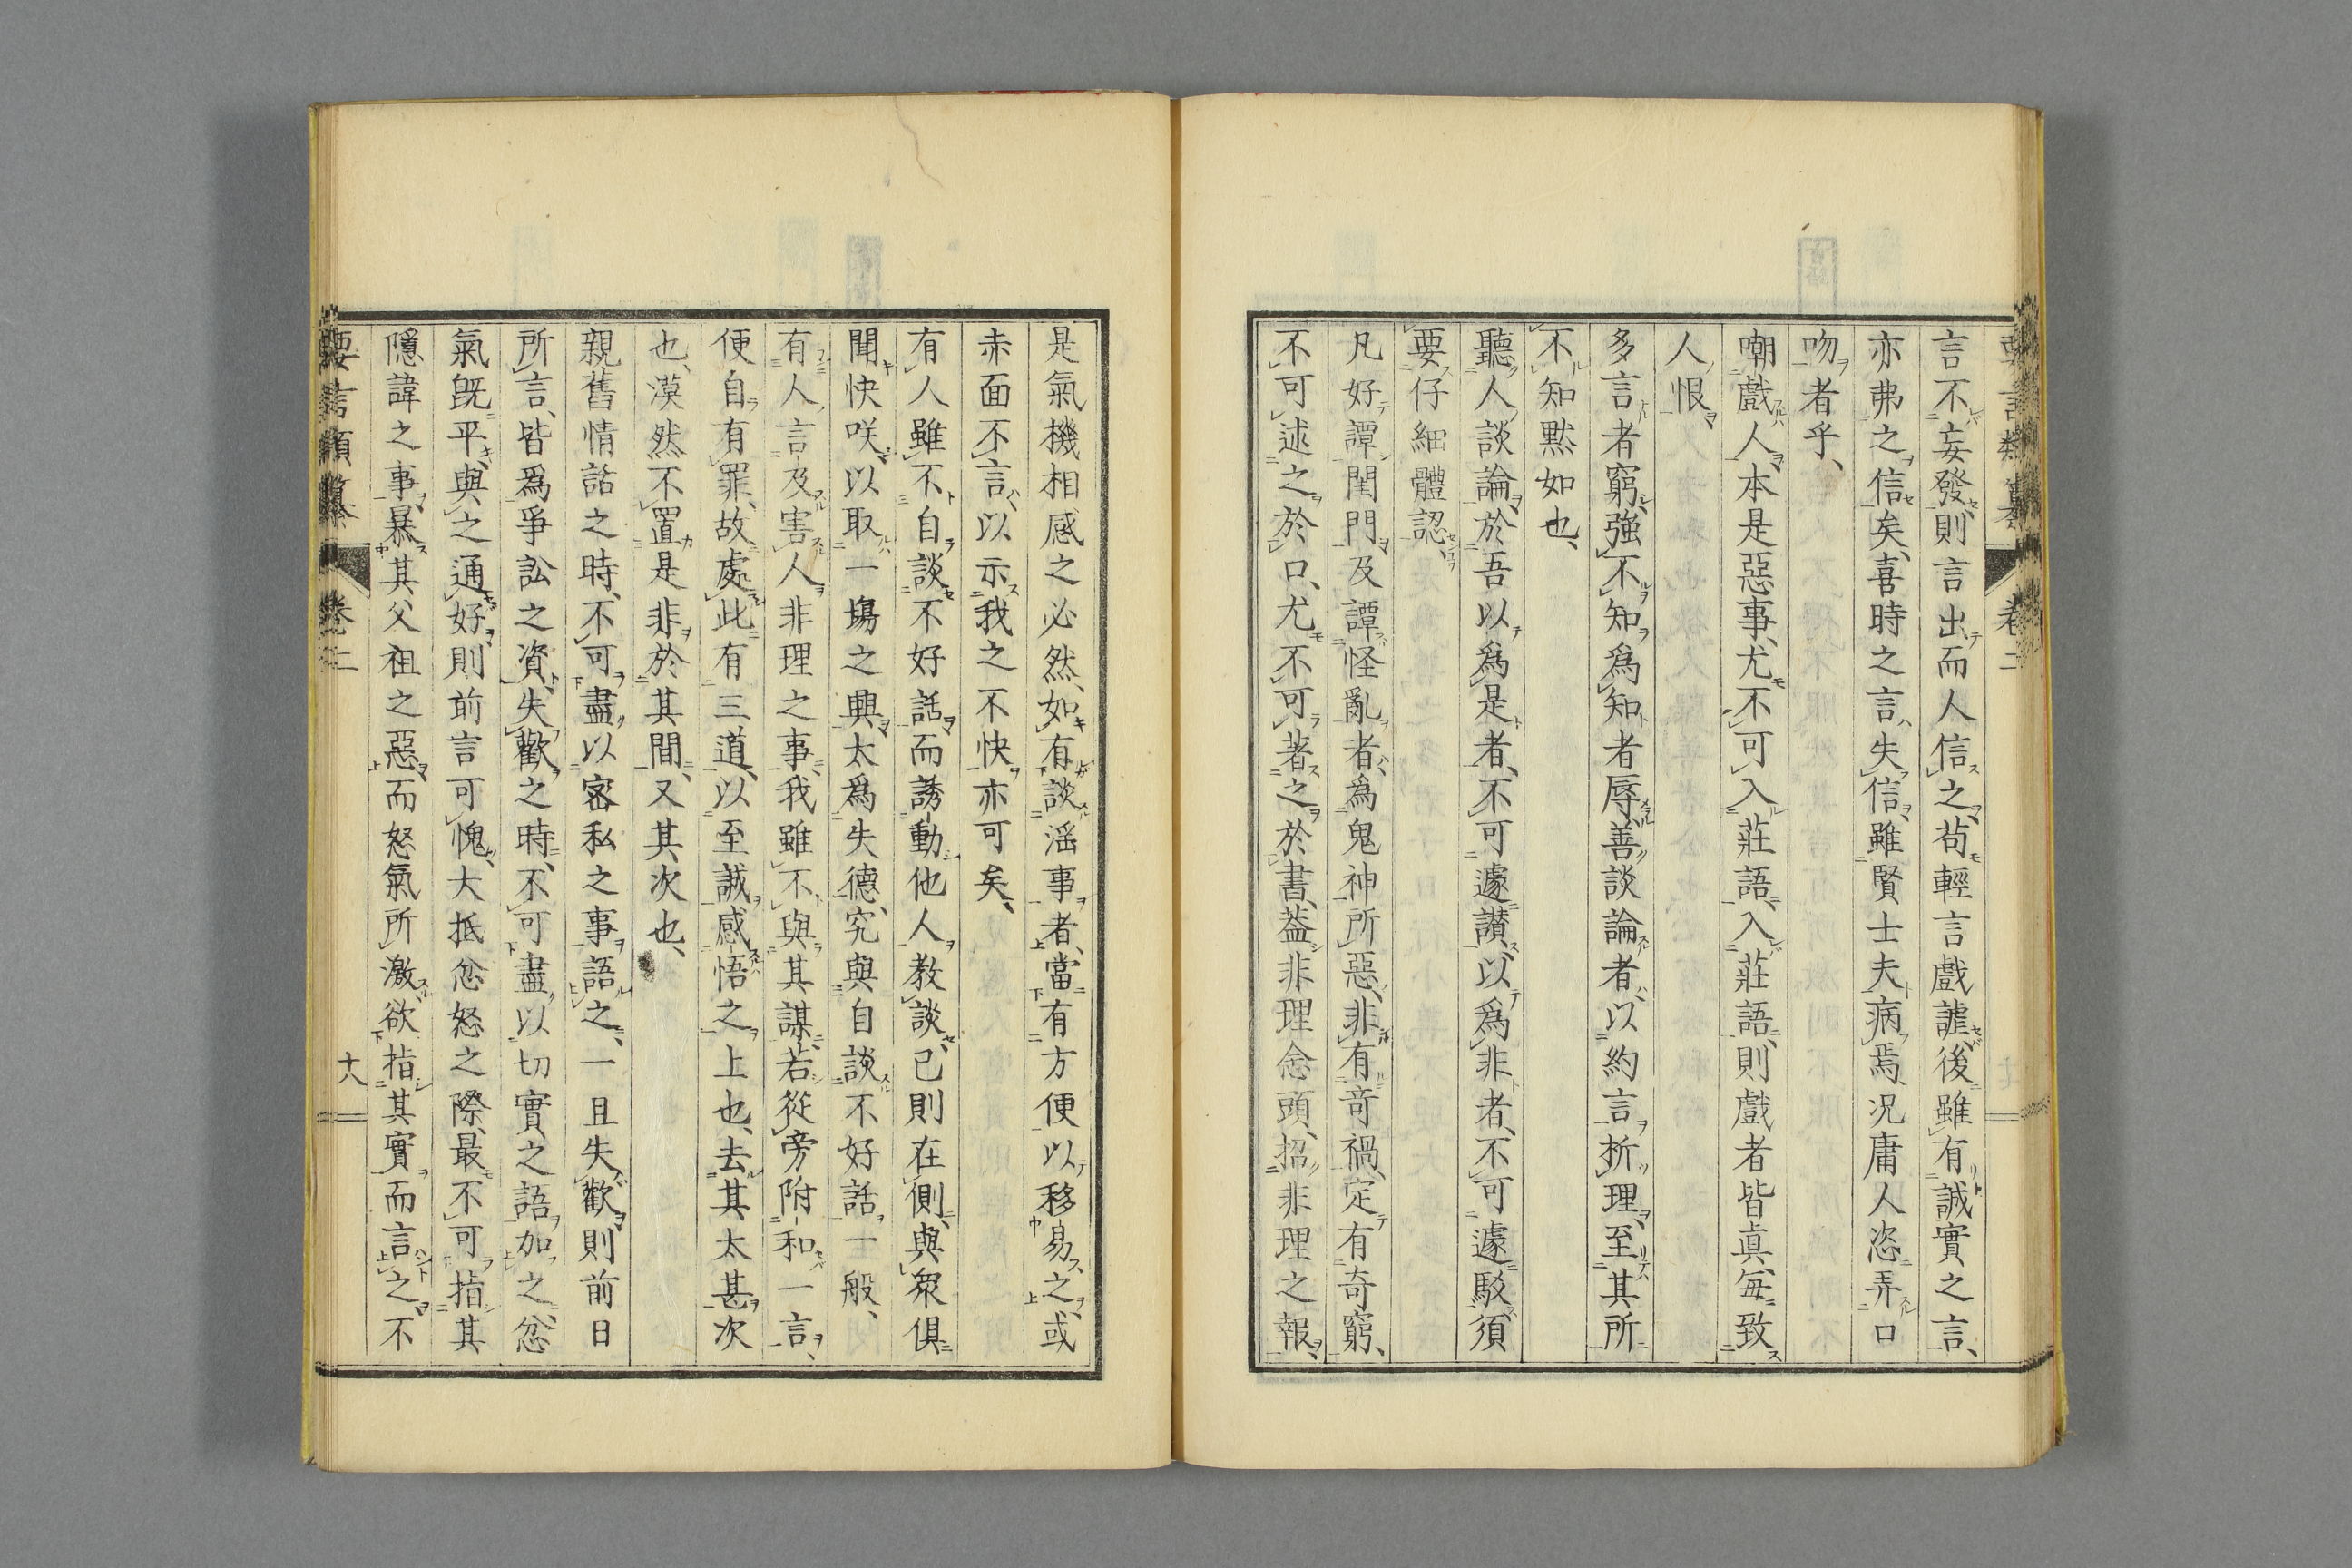 要言類纂 卷二
言不妄發、則言出而人信之、苟輕言戲謔後雖有誠實之言、
亦弗之信矣、喜時之言、失信、雖賢士夫病焉、況庸人恣弄口
吻者乎、
嘲戲人本是惡事、尤不可入莊語、入莊語、則戲者皆眞、每致
人恨
多言者窮、強不知爲知者辱、善談論者、以約言析理、至其所
不知默如也、
聽人談論、於吾以爲是者、不可遽讃、以爲非者、不可遽駁、須
要仔細體認、
凡好譚閨門及譚怪亂者、爲鬼神所惡、非有竒禍、定有奇窮、
不可述之於口、尤不可著之於書、葢非理念頭、招非理之報、
是氣機相感之必然、如有談淫事者、當有方便以移易之、或
赤面不言以示我之不快亦可矣、
有人雖不自談不好話而誘動他人教談、已則在側、與衆俱
聞快咲以取一塲之興太爲失德、究與自談不好話一般、
有人言及害人非理之事、我雖不與其謀、若從旁附和一言、
便自有罪、故處此有三道、以至誠感悟之上也、去其太甚次
也、漠然不置是非於其間、又其次也、
親舊情話之時、不可盡以密私之事語之、一旦失歡、則前日
所言、皆爲爭訟之資、失歡之時、不可盡以切實之語加之、忿
氣旣平、與之通好、則前言可愧、大抵忿怒之際、最不可指其
隱諱之事、暴其父祖之惡、而怒氣所激、欲指其實而言之、不
要言類纂 卷二 十八